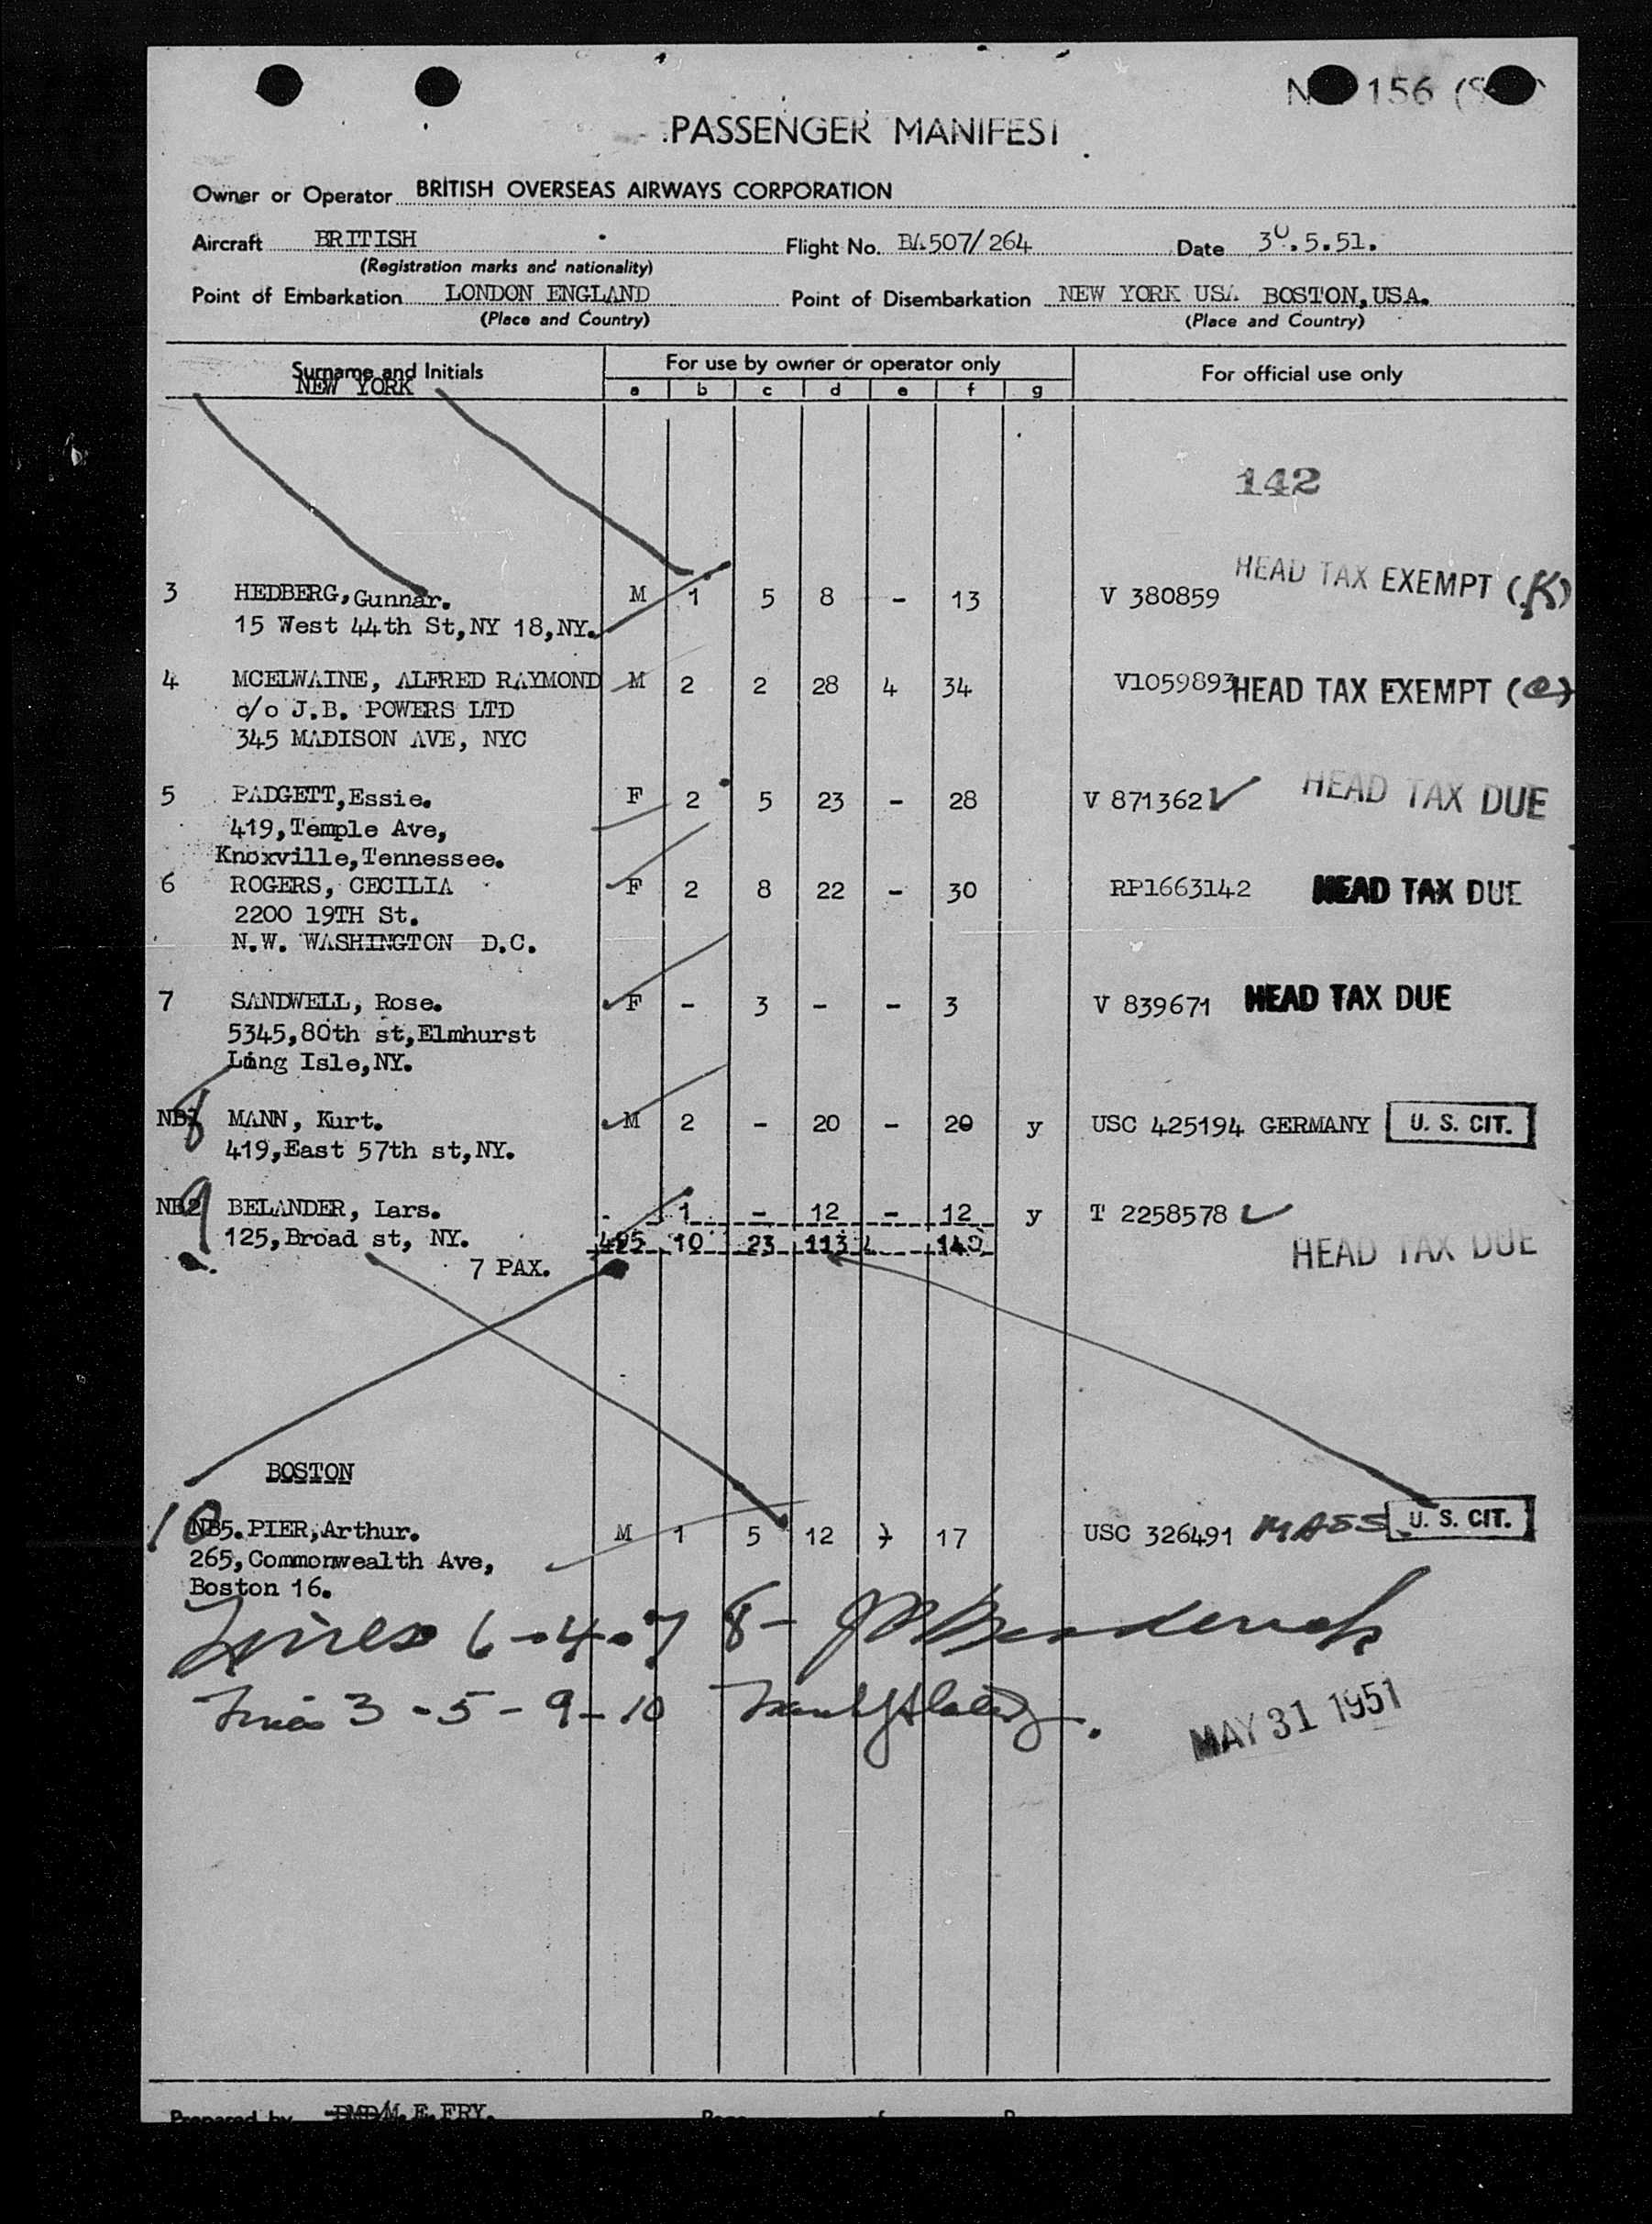 156
PASSENGER MANIFEST
Owner or Operator BRITISH OVERSEAS AIRWAYS CORPORATION
Aircraft BRITISH Flight No. BA507/264 Date 30.5.51.
(Registration marks and nationality)
Point of Embarkation LONDON ENGLAND Point of Disembarkation NEW YORK USA BOSTON, USA.
(Place and Country) (Place and Country)
Surname and Initials For use by owner or operator only For official use only
NEW YORK a b c d e f g
142
HEAD TAX EXEMPT (K)
3 HEDBERG, Gunnar. M 1 5 8 - 13 V 380859
15 West 44th St, NY 18, NY.
4 MCELWAINE, ALFRED RAYMOND M 2 2 28 4 34 V1059893 HEAD TAX EXEMPT (e)
c/o J.B. POWERS LTD
345 MADISON AVE, NYC
5 PADGETT, Essie. F 2 5 23 - 28 V 871362 HEAD TAX DUE
419, Temple Ave,
Knoxville, Tennessee.
6 ROGERS, CECILIA F 2 8 22 - 30 RP1663142 HEAD TAX DUE
2200 19TH St.
N.W. WASHINGTON D.C.
7 SANDWELL, Rose. F - 3 - - 3 V 839671 HEAD TAX DUE
5345, 80th st, Elmhurst
Long Isle, NY.
8 MANN, Kurt. M 2 - 20 - 20 y USC 425194 GERMANY U. S. CIT.
419, East 57th st, NY.
NB2 9 BELANDER, Lars. 1 - 12 - 12 y T 2258578
125, Broad st, NY. 10 23 113 140 HEAD TAX DUE
7 PAX.
BOSTON
10 NB5. PIER, Arthur. M 1 5 12 17 USC 326491 MASS. U. S. CIT.
265, Commonwealth Ave,
Boston 16.
Lines 6-4-7 8-
Lines 3-5-9-10
MAY 31 1951
Prepared by M.E. FRY.